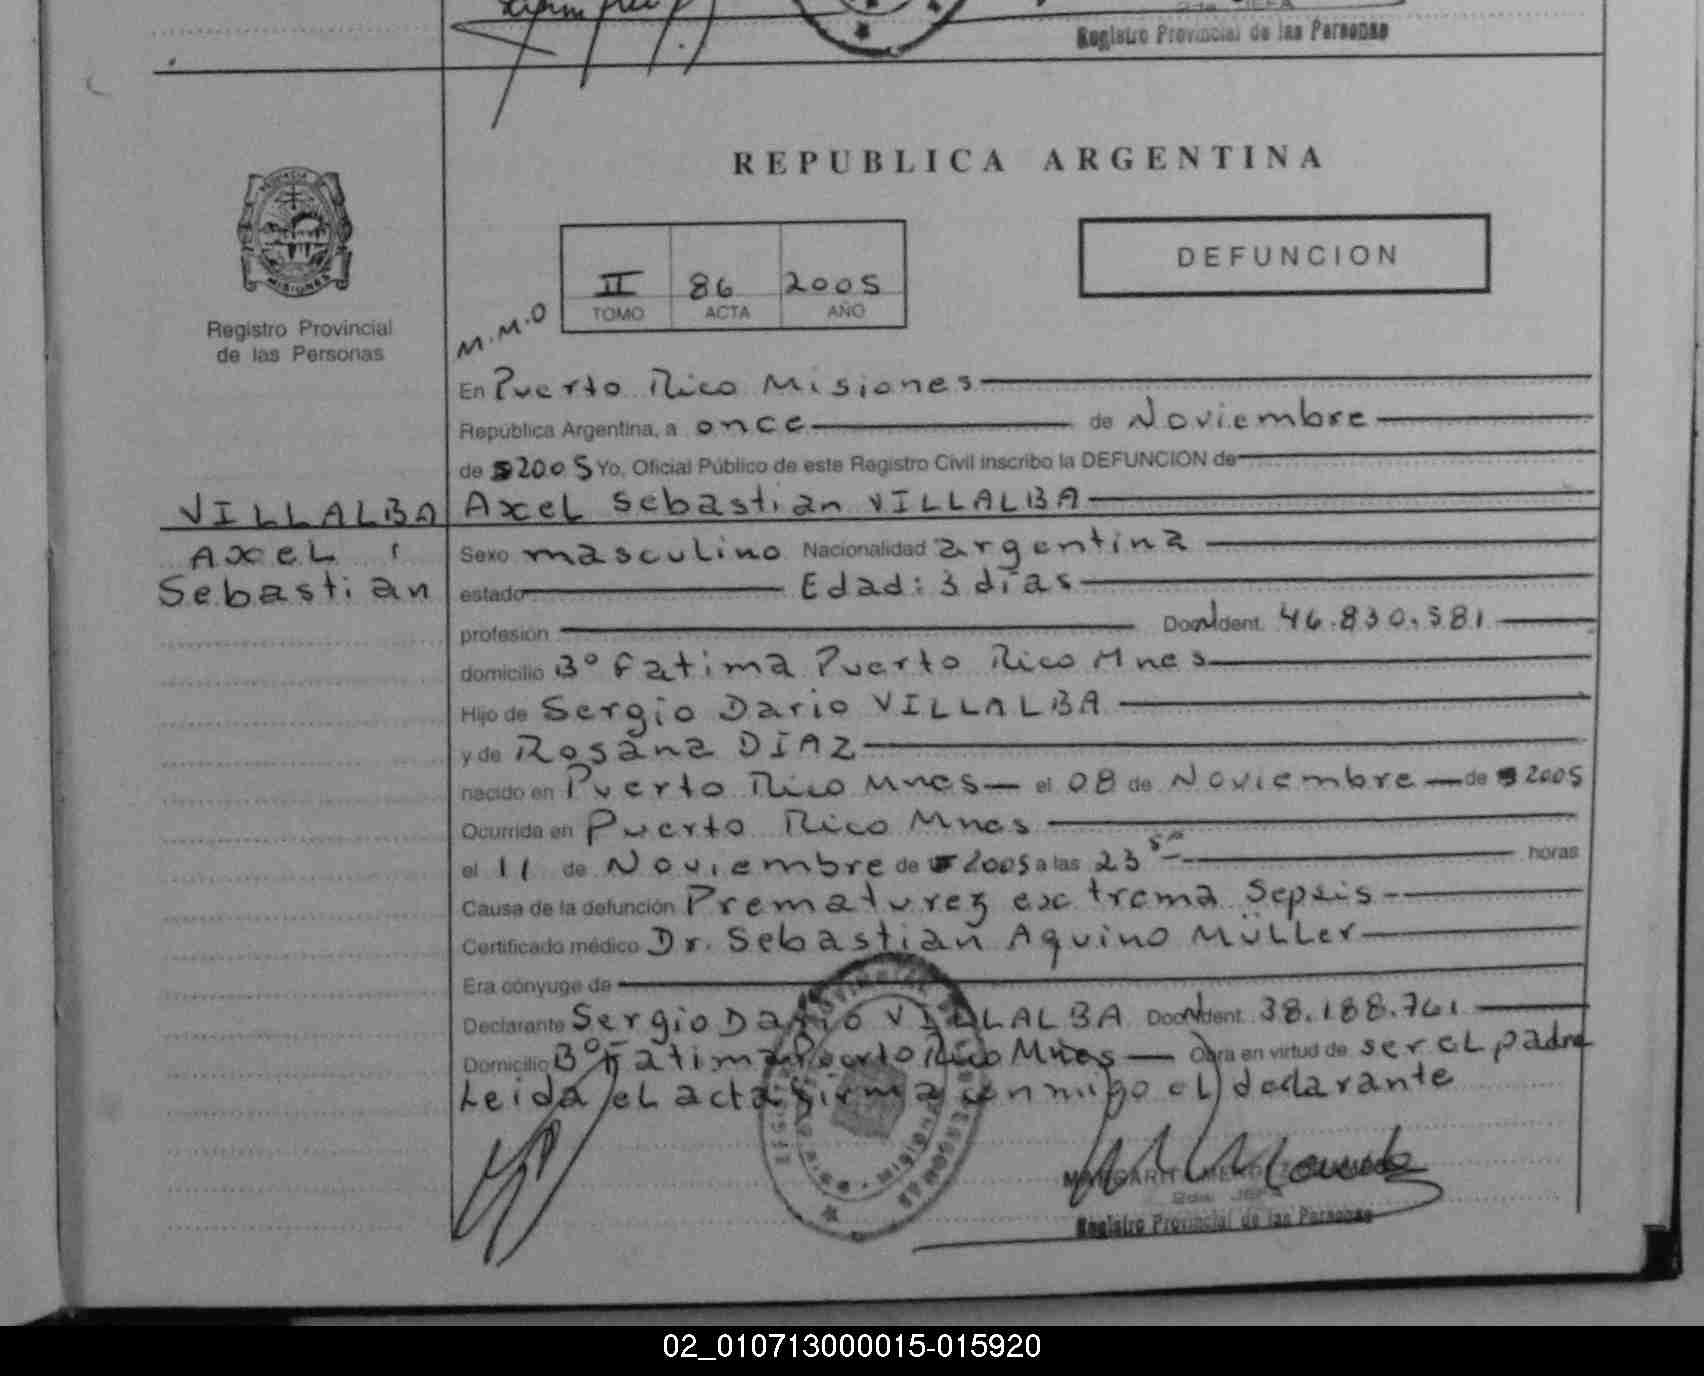 2da JEFA
Registro Provincial de las Personas
REPUBLICA ARGENTINA
PROVINCIA
MISIONES
Registro Provincial
de las Personas
II 86 2005
TOMO ACTA AÑO
DEFUNCION
M.M.O
En Puerto Rico Misiones
República Argentina, a once de Noviembre
de 2005 Yo, Oficial Público de este Registro Civil inscribo la DEFUNCION de
VILLALBA Axel Sebastian VILLALBA
Axel
Sebastian
Sexo masculino Nacionalidad argentina
estado Edad: 3 días
profesión Doc. Ident. 46.830.581
domicilio Bº Fatima Puerto Rico Mnes
Hijo de Sergio Dario VILLALBA
y de Rosana DIAZ
nacido en Puerto Rico Mnes el 08 de Noviembre de 2005
Ocurrida en Puerto Rico Mnes
el 11 de Noviembre de 2005 a las 23 horas
Causa de la defunción Prematurez extrema Sepsis
Certificado médico Dr. Sebastian Aquino Müller
Era cónyuge de
Declarante Sergio Dario VILLALBA Doc. Ident. 38.188.761
Domicilio Bº Fatima Puerto Rico Mnes Obra en virtud de ser el padre
Leida el acta firma conmigo el declarante
2da JEFA
Registro Provincial de las Personas
02_010713000015-015920